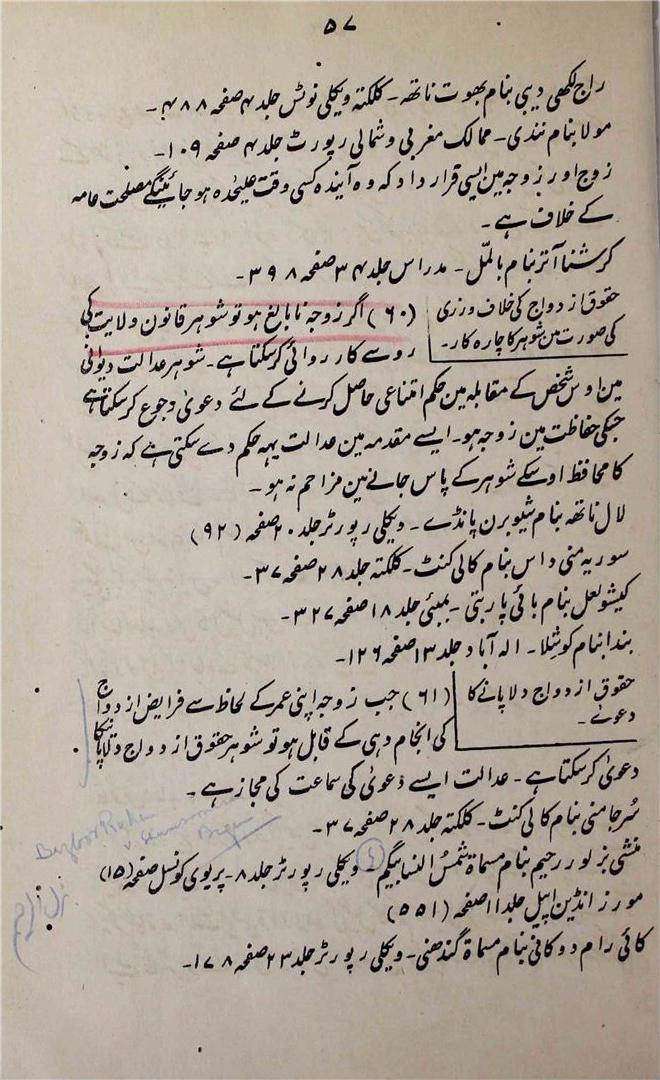 ۵۷
راج لکھی دیبی بنام بھوت ناتھ۔ کلکتہ ویکلی نوٹس جلد ۴ صفحہ ۴۸۸۔
مولا بنام نندی۔ ممالک مغربی و شمالی رپورٹ جلد ۴ صفحہ ۱۰۹۔
زوج اور زوجہ مین ایسی قرار داد کہ وہ آیندہ کسی وقت علیٰحدہ ہو جائینگے مصلحت عامہ
کے خلاف ہے۔
کرشنا آئر بنام بالمّل۔ مدراس جلد ۳۴ صفحہ ۳۹۸۔
حقوق ازدواج کی خلاف ورزی
کی صورت مین شوہر کا چارہ کار۔
(۶۰) اگر زوجہ نابالغ ہو تو شوہر قانون ولایت کی
رو سے کارروائی کرسکتا ہے۔ شوہر عدالت دیوانی
مین اوس شخص کے مقابلہ مین حکم امتناعی حاصل کرنے کے لئے دعویٰ رجوع کرسکتا ہے
جسکی حفاظت مین زوجہ ہو۔ ایسے مقدمہ مین عدالت یہہ حکم دے سکتی ہے کہ زوجہ
کا محافظ اوسکے شوہر کے پاس جانے مین مزاحم نہ ہو۔
لال ناتھ بنام شیوبرن پانڈے۔ ویکلی رپورٹر جلد ۲۰ صفحہ (۹۲)
سوریہ منی داس بنام کالی کنٹ۔ کلکتہ جلد ۲۸ صفحہ ۳۷۔
کیشولعل بنام بائی پاربتی۔ بمبئی جلد ۱۸ صفحہ ۳۲۷۔
بندا بنام کوشِلا۔ الہ آباد جلد ۱۳ صفحہ ۱۲۶۔
حقوق ازدواج دلا پانے کا
دعوے۔
(۶۱) جب زوجہ اپنی عمر کے لحاظ سے فرایض ازدواج
کی انجام دہی کے قابل ہو تو شوہر حقوق ازدواج دلا پانیکا
دعویٰ کرسکتا ہے۔ عدالت ایسے دعویٰ کی سماعت کی مجاز ہے۔
سُرجا منی بنام کالی کنٹ۔ کلکتہ جلد ۲۸ صفحہ ۳۷۔
منشی بزلور رحیم بنام مسماۃ شمسُ النسا بیگم۔ ویکلی رپورٹر جلد ۸۔ پریوی کونسل صفحہ (۱۵)
مورز انڈین اپیل جلد ۱۱ صفحہ (۵۵۱)
کائی رام دوکانی بنام مسماۃ گندھنی۔ ویکلی رپورٹر جلد ۲۳ صفحہ ۱۷۸۔